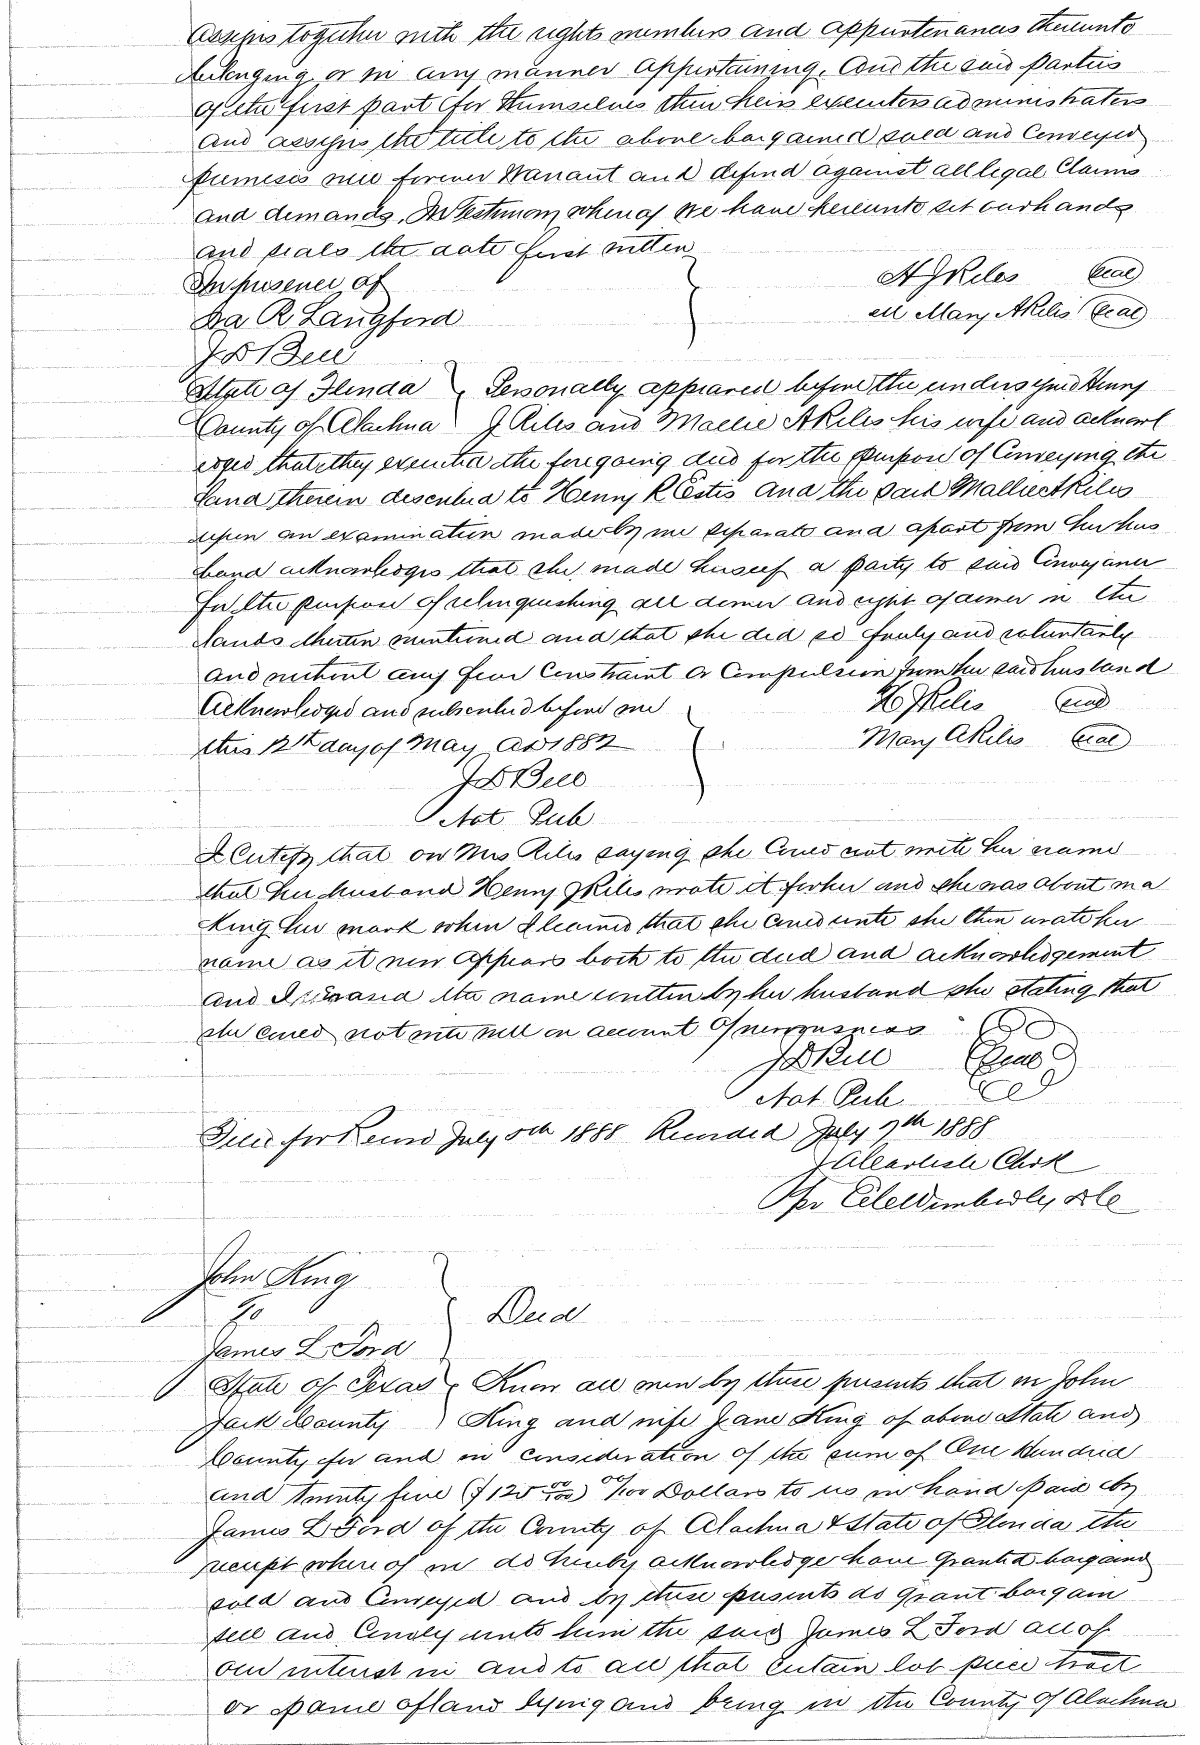 assigns together with the rights members and appurtenances thereunto
belonging or in any manner appertaining. And the said parties
of the first part for themselves their heirs executors administrators
and assigns the title to the above bargained sold and conveyed
premises will forever Warrant and defend against all legal Claims
and demands. In Testimony whereof we have hereunto set our hands
and seals the date first written
In presence of
Ira R Langford
J D Bell
H J Riles (seal)
Mary A Riles (seal)
State of Florida } Personally appeared before the undersigned Henry
County of Alachua } J Riles and Mallie A Riles his wife and acknowl
edged that they executed the foregoing deed for the purpose of Conveying the
land therein described to Henry R Estis and the said Mallie A Riles
upon an examination made by me separate and apart from her hus
band acknowledges that she made herself a party to said Conveyance
for the purpose of relinquishing all dower and right of dower in the
lands therein mentioned and that she did so freely and voluntarily
and without any fear Constraint or Compulsion from her said husband
Acknowledged and subscribed before me
this 12th day of May AD 1882
H J Riles (seal)
Mary A Riles (seal)
J D Bell
Not Pub
I Certify that on Mrs Riles saying she Could not write her name
that her husband Henry J Riles wrote it for her and she was about ma
king her mark when I learned that she could write she then wrote her
name as it now appears both to the deed and acknowledgement
and I erased the name written by her husband she stating that
she could not write well on account of nervousness
J D Bell (Seal)
Not Pub
Filed for Record July 5th 1888 Recorded July 7th 1888
J A Carlisle Clerk
Per Wimberly DC
John King
To
James L Ford
} Deed
State of Texas } Know all men by these presents that we John
Jack County } King and wife Jane King of above State and
County for and in consideration of the sum of One Hundred
and twenty five ($125 00/100) 00/100 Dollars to us in hand paid by
James L Ford of the County of Alachua & State of Florida the
receipt whereof we do hereby acknowledge have granted bargained
sold and Conveyed and by these presents do grant bargain
sell and Convey unto him the said James L Ford all of
our interest in and to all that certain lot piece tract
or parcel of land lying and being in the County of Alachua